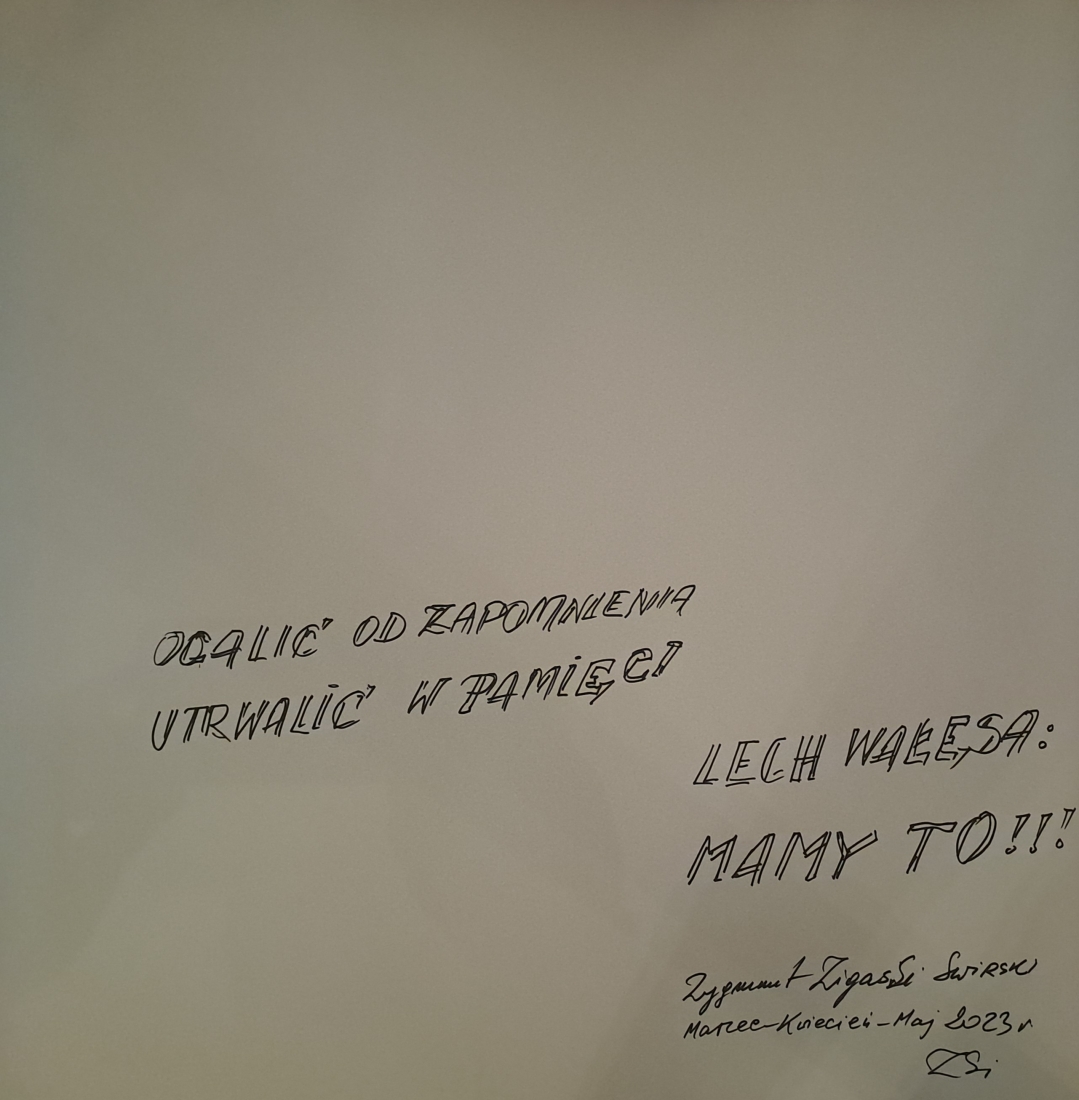 OCALIĆ OD ZAPOMNIENIA
UTRWALIĆ W PAMIĘCI
LECH WAŁĘSA:
MAMY TO!!!
Zygmunt Zigassi Świrski
Marzec-Kwiecień-Maj 2023 r
ZSi